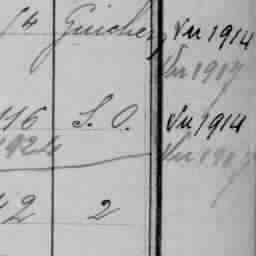 14 Guichen Vu 1914
Vu 1917
16 S. O. Vu 1914
1924 Vu 1917
42 2